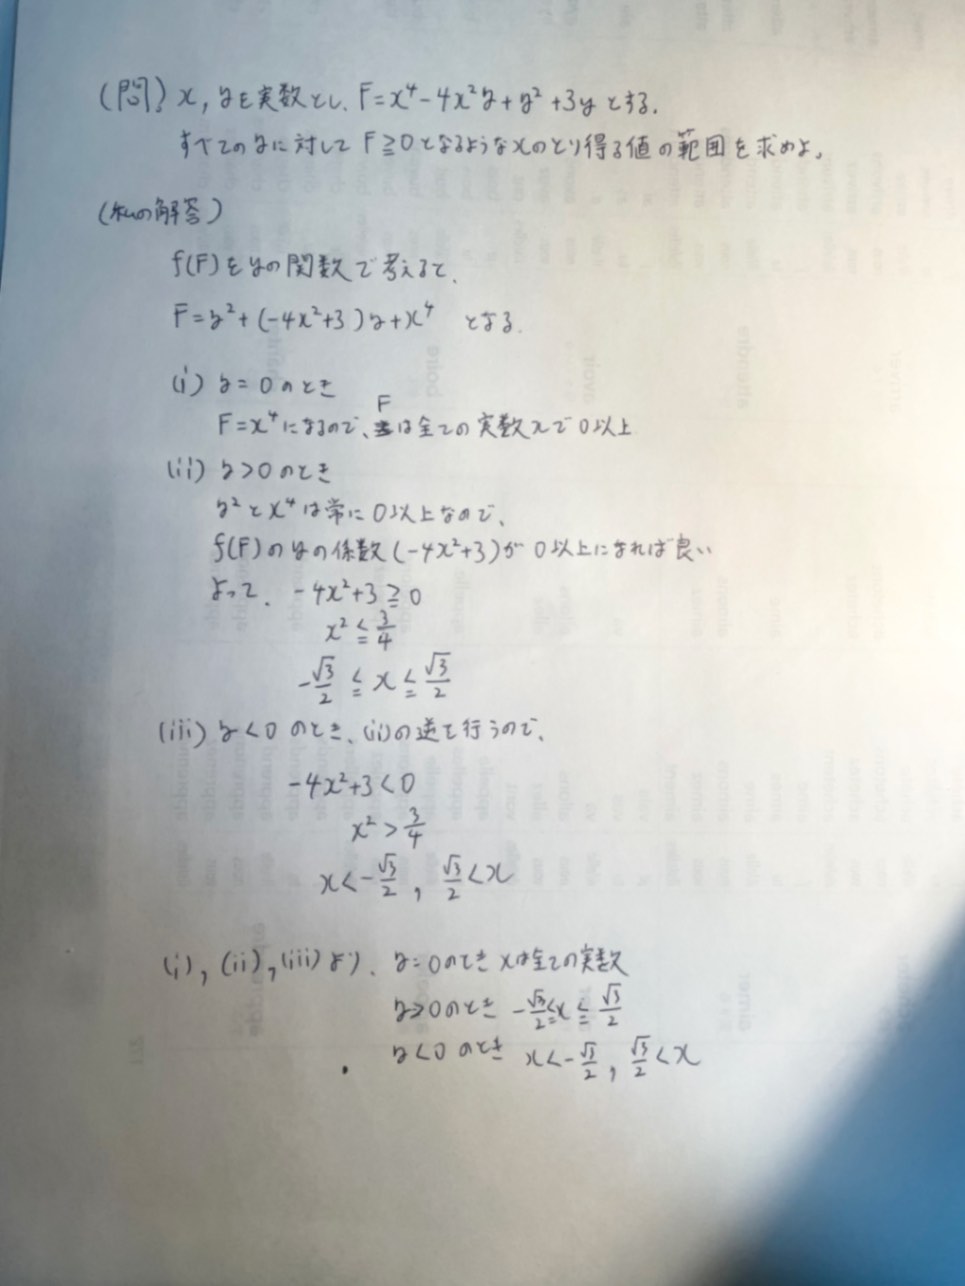 (問) x, yを実数とし、F=x⁴-4x²y+y²+3yとする。
すべてのyに対してF≧0となるようなxのとり得る値の範囲を求めよ。
(私の解答)
f(F)をyの関数で考えると、
F=y²+(-4x²+3)y+x⁴ となる.
(i) y=0のとき
F=x⁴になるので、Fは全ての実数xで0以上
(ii) y>0のとき
y²とx⁴は常に0以上なので、
f(F)のyの係数(-4x²+3)が0以上になれば良い
よって、-4x²+3≧0
x²≦3/4
-√3/2≦x≦√3/2
(iii) y<0のとき、(ii)の逆を行うので、
-4x²+3<0
x²>3/4
x<-√3/2, √3/2<x
(i), (ii), (iii)より、y=0のときxは全ての実数
y>0のとき -√3/2≦x≦√3/2
y<0のとき x<-√3/2, √3/2<x